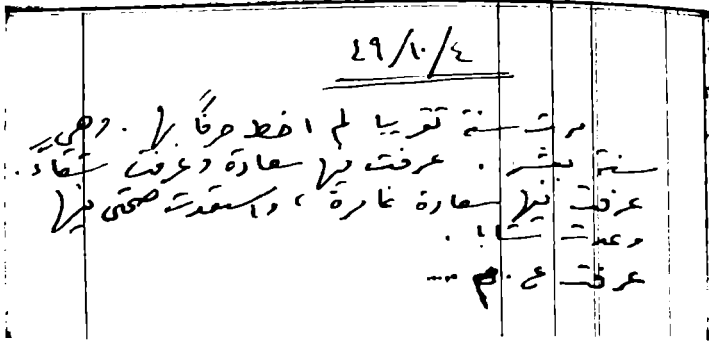 ٤٩/١٠/٤
مرت سنة تقريبا لم اخط حرفًا بها . وهي
سنة بشر . عرفت فيها سعادة وعرفت شقاءً .
عرفت فيها سعادة غامرة ، واستعدت صحتي فيها
وعدت شابا .
عرفت ع . م ...